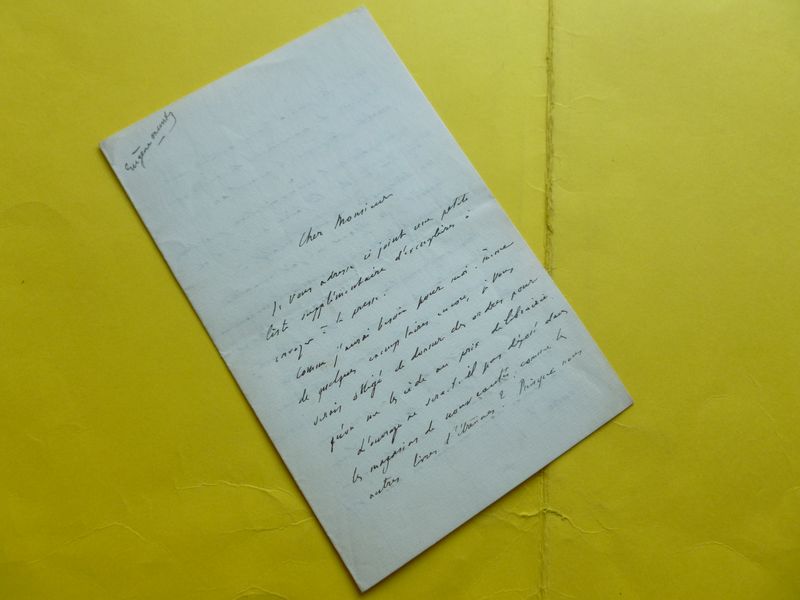 Eugène Muntz
Cher Monsieur
Je vous adresse ci joint une petite
liste supplémentaire d'exemplaires à
envoyer à la presse.
Comme j'aurai besoin pour moi-même
de quelques exemplaires encore, je vous
serais obligé de donner des ordres pour
qu'on me les cède au prix de librairie.
L'ouvrage ne serait-il pas déposé dans
les magasins de nouveautés, comme les
autres livres d'étrennes? Puisque nous